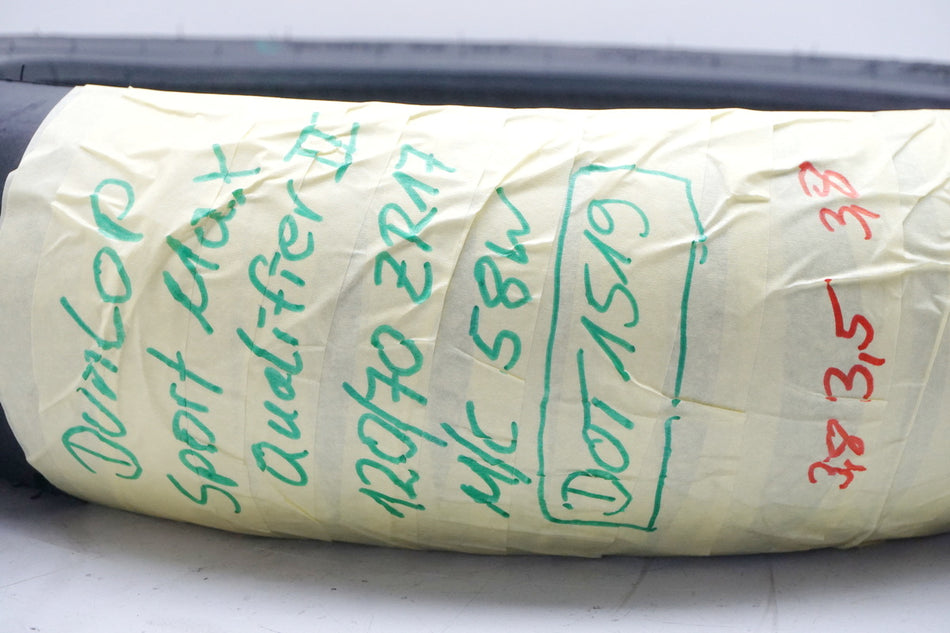 Dunlop
Sport Max
Qualifier II
120/70 ZR17
M/C 58W
DOT 1519
3,8 3,5 3,8